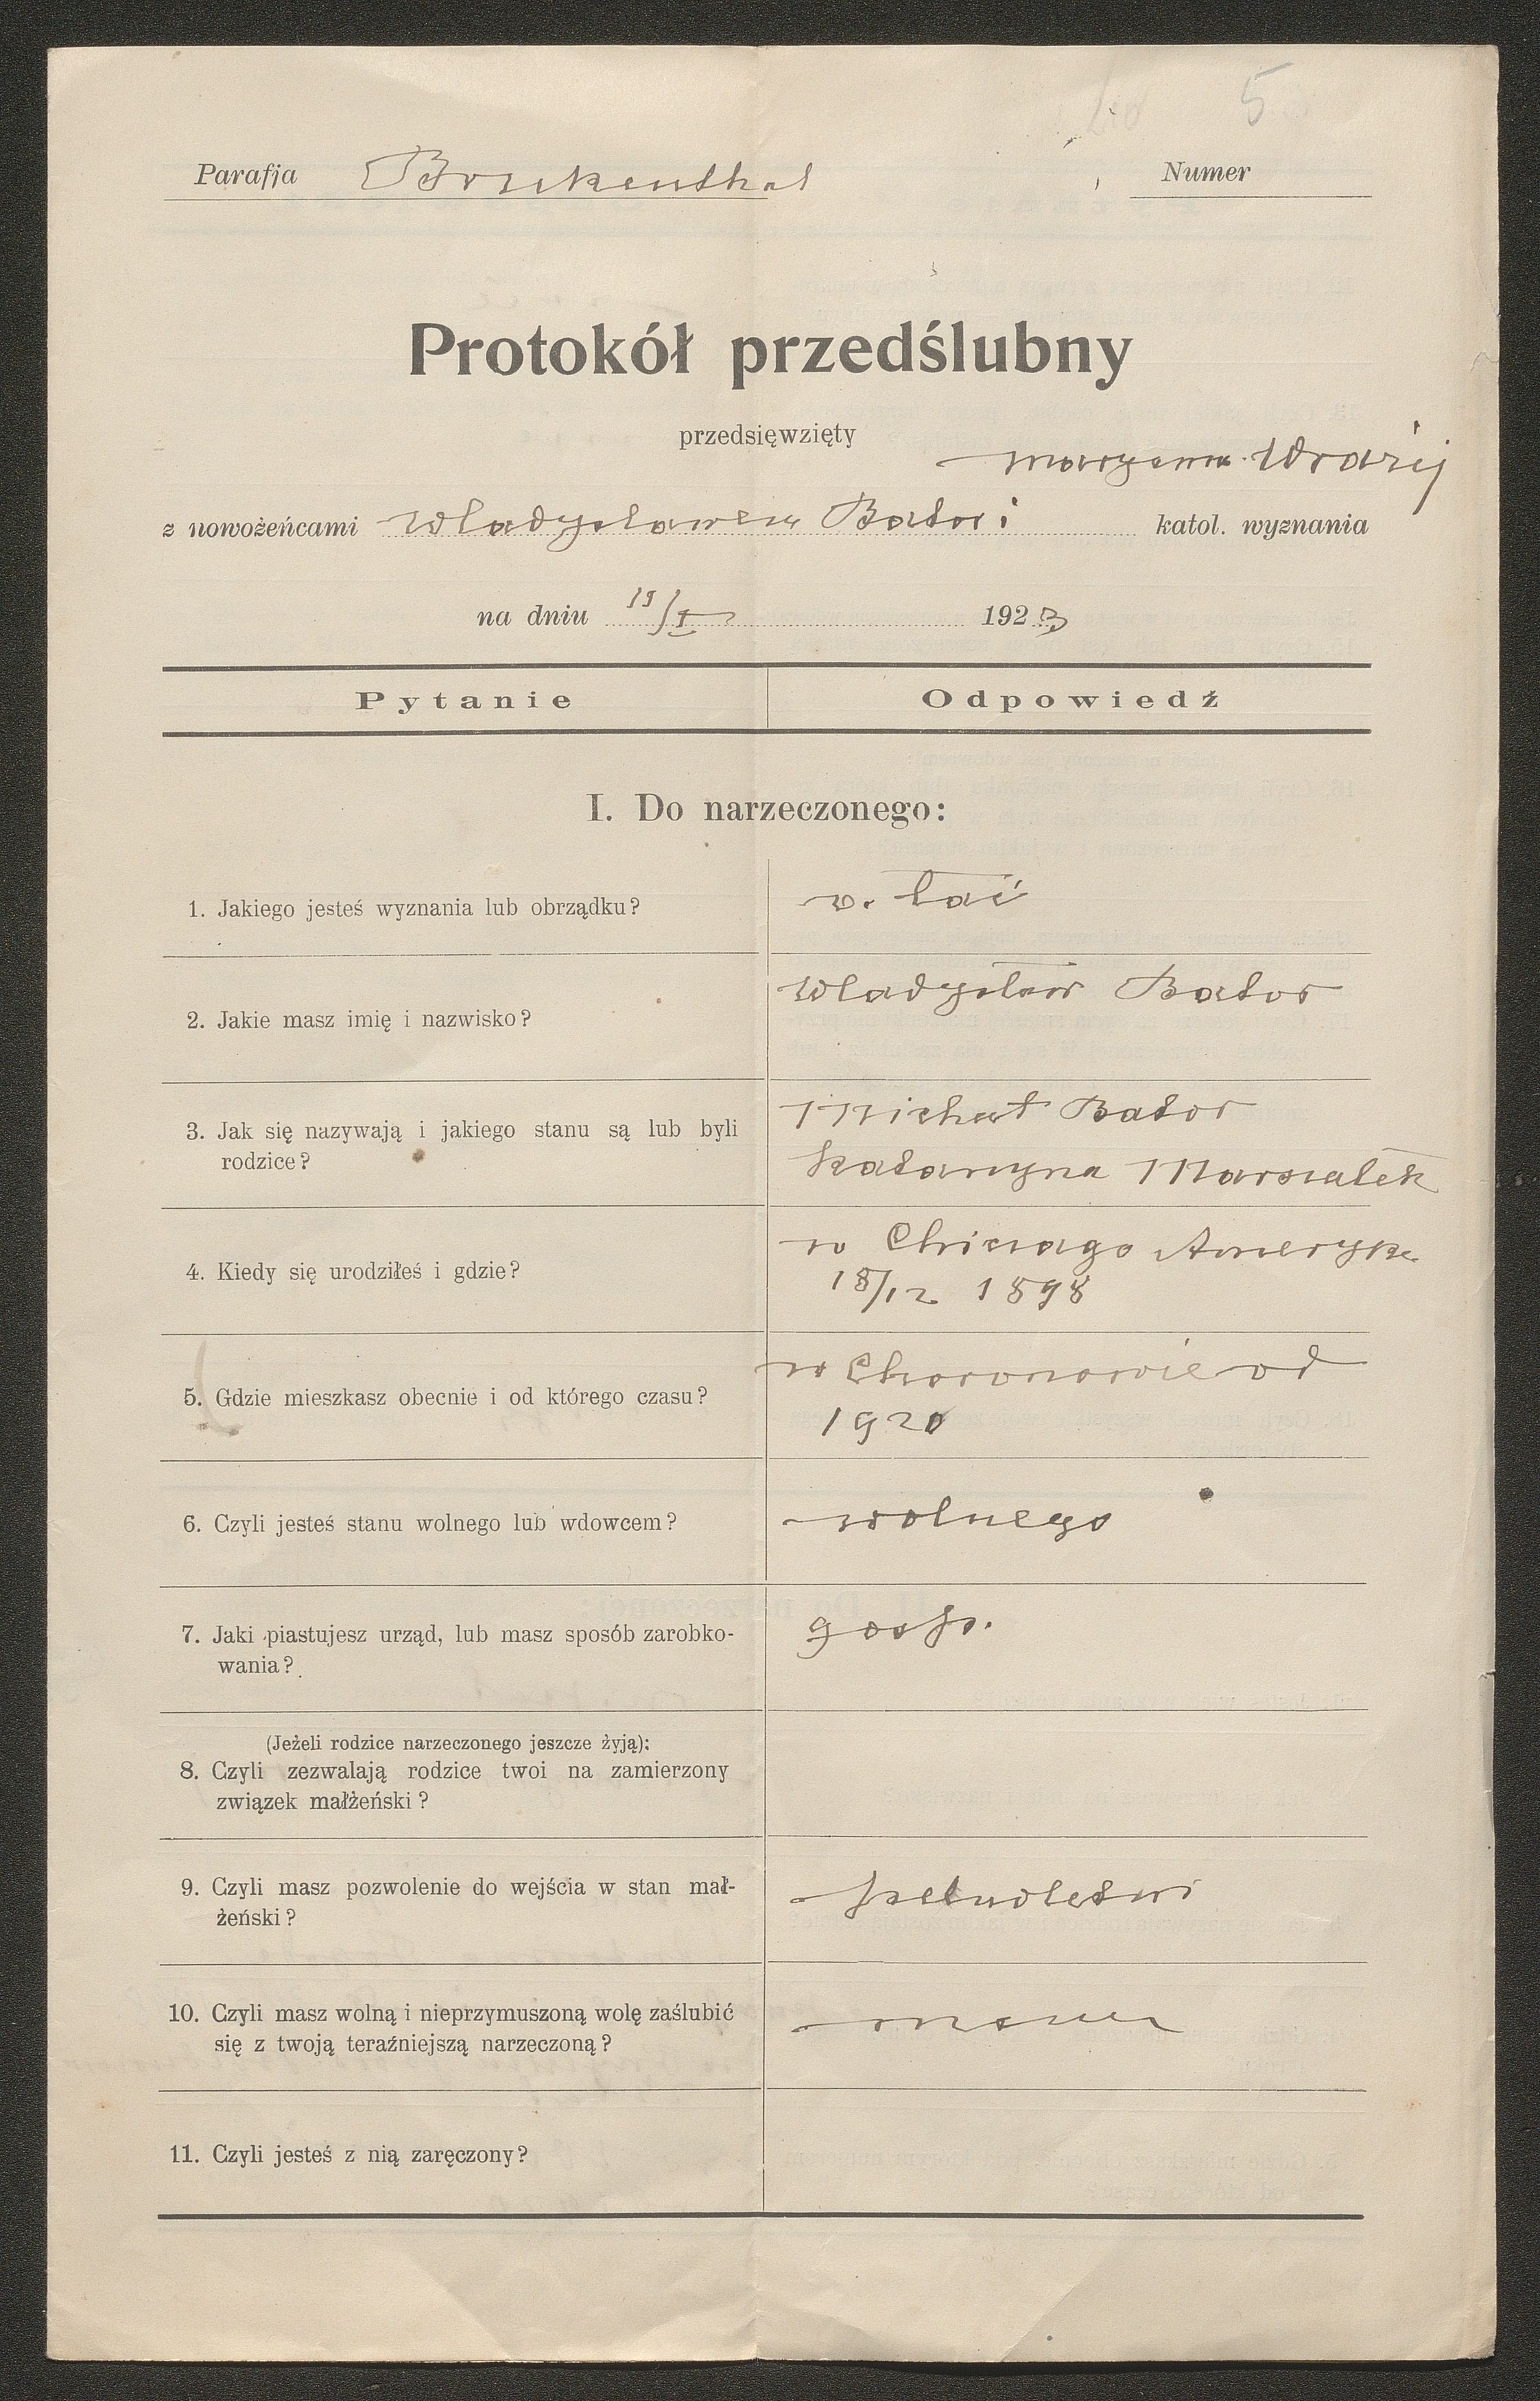 5
Parafja Bruckenthal Numer
Protokół przedślubny
przedsięwzięty
Maryanna
z nowożeńcami Władysławem Bator i katol. wyznania
na dniu 19/I 1923
Pytanie Odpowiedź
I. Do narzeczonego:
1. Jakiego jesteś wyznania lub obrządku? r. łać
2. Jakie masz imię i nazwisko? Władysław Bator
3. Jak się nazywają i jakiego stanu są lub byli Michał Bator
rodzice? Katarzyna Marszałek
4. Kiedy się urodziłeś i gdzie? w Chicago Ameryka
18/12 1898
5. Gdzie mieszkasz obecnie i od którego czasu? w Choronowie od
1920
6. Czyli jesteś stanu wolnego lub wdowcem? wolnego
7. Jaki piastujesz urząd, lub masz sposób zarobko- gosp.
wania?
(Jeżeli rodzice narzeczonego jeszcze żyją):
8. Czyli zezwalają rodzice twoi na zamierzony
związek małżeński?
9. Czyli masz pozwolenie do wejścia w stan mał- pełnoletni
żeński?
10. Czyli masz wolną i nieprzymuszoną wolę zaślubić mam
się z twoją teraźniejszą narzeczoną?
11. Czyli jesteś z nią zaręczony?